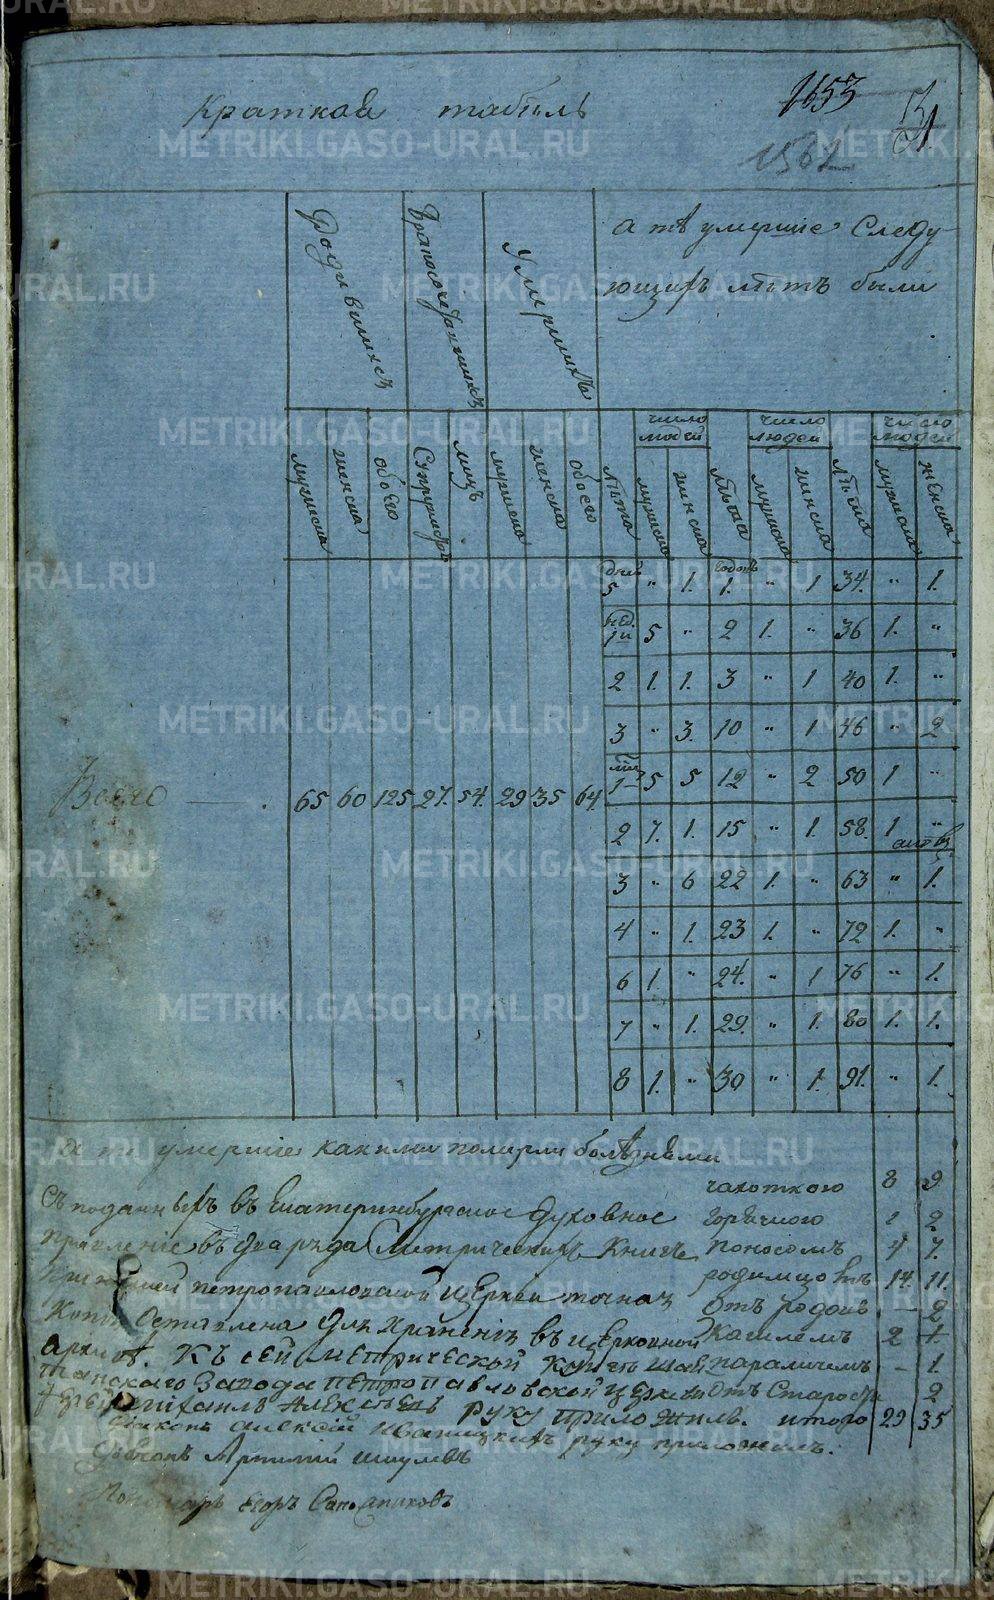 Краткая табель
1653
1562
31
Родившихся
Бракосочетавшихся
Умершихъ
а тѣ умершіе Следу-
ющихъ лѣтъ были
число людей
число людей
число людей
мужеска
женска
обоего
Супружествъ
лицъ
мужеска
женска
обоего
лѣта
мужеска
женска
лѣта
мужеска
женска
лѣта
мужеска
женска
дней 5 " 1. годовъ 1. " 1 34. " 1.
нед. 1й 5 " 2 1. " 36 1. "
2 1. 1. 3 " 1 40 1. "
3 " 3. 10 " 1 46 " 2
1 5 5 12 " 2 50 1 "
Всего 65 60 125 27. 54. 29 35 64
2 7. 1. 15 " 1. 58. 1 "
3 " 6 22 1. " 63 " 1.
4 " 1. 23 1. " 72 1. "
6 1. " 24. " 1 76 " 1.
7 " 1. 29. " 1. 80 1. 1.
8 1. " 30 " 1. 91. " 1.
а тѣ умершіе какими померли болѣзнями
чахоткою 8 9
Съ поданныхъ въ Екатеринбургское Духовное
горячкою 1 2
правленіе въ два ряда Метрическихъ Книгъ
поносомъ 4 7.
петропавловской церкви точная
родимцовъ 14. 11.
Копія Оставлена Для Хранения въ церковной
Отъ родовъ – 2
Кашлемъ 2 1
Архивѣ. Къ сей метрической книгѣ Шай-
параличемъ – 1.
танскаго Завода Петропавловской церкви
отъ Старости 2
Іерей Михаилъ Алексѣевъ руку приложилъ.
итого 29 35
Диаконъ Алексій руку приложилъ.
Дьячокъ
Пономарь Егоръ Сапожниковъ
METRIKI.GASO-URAL.RU